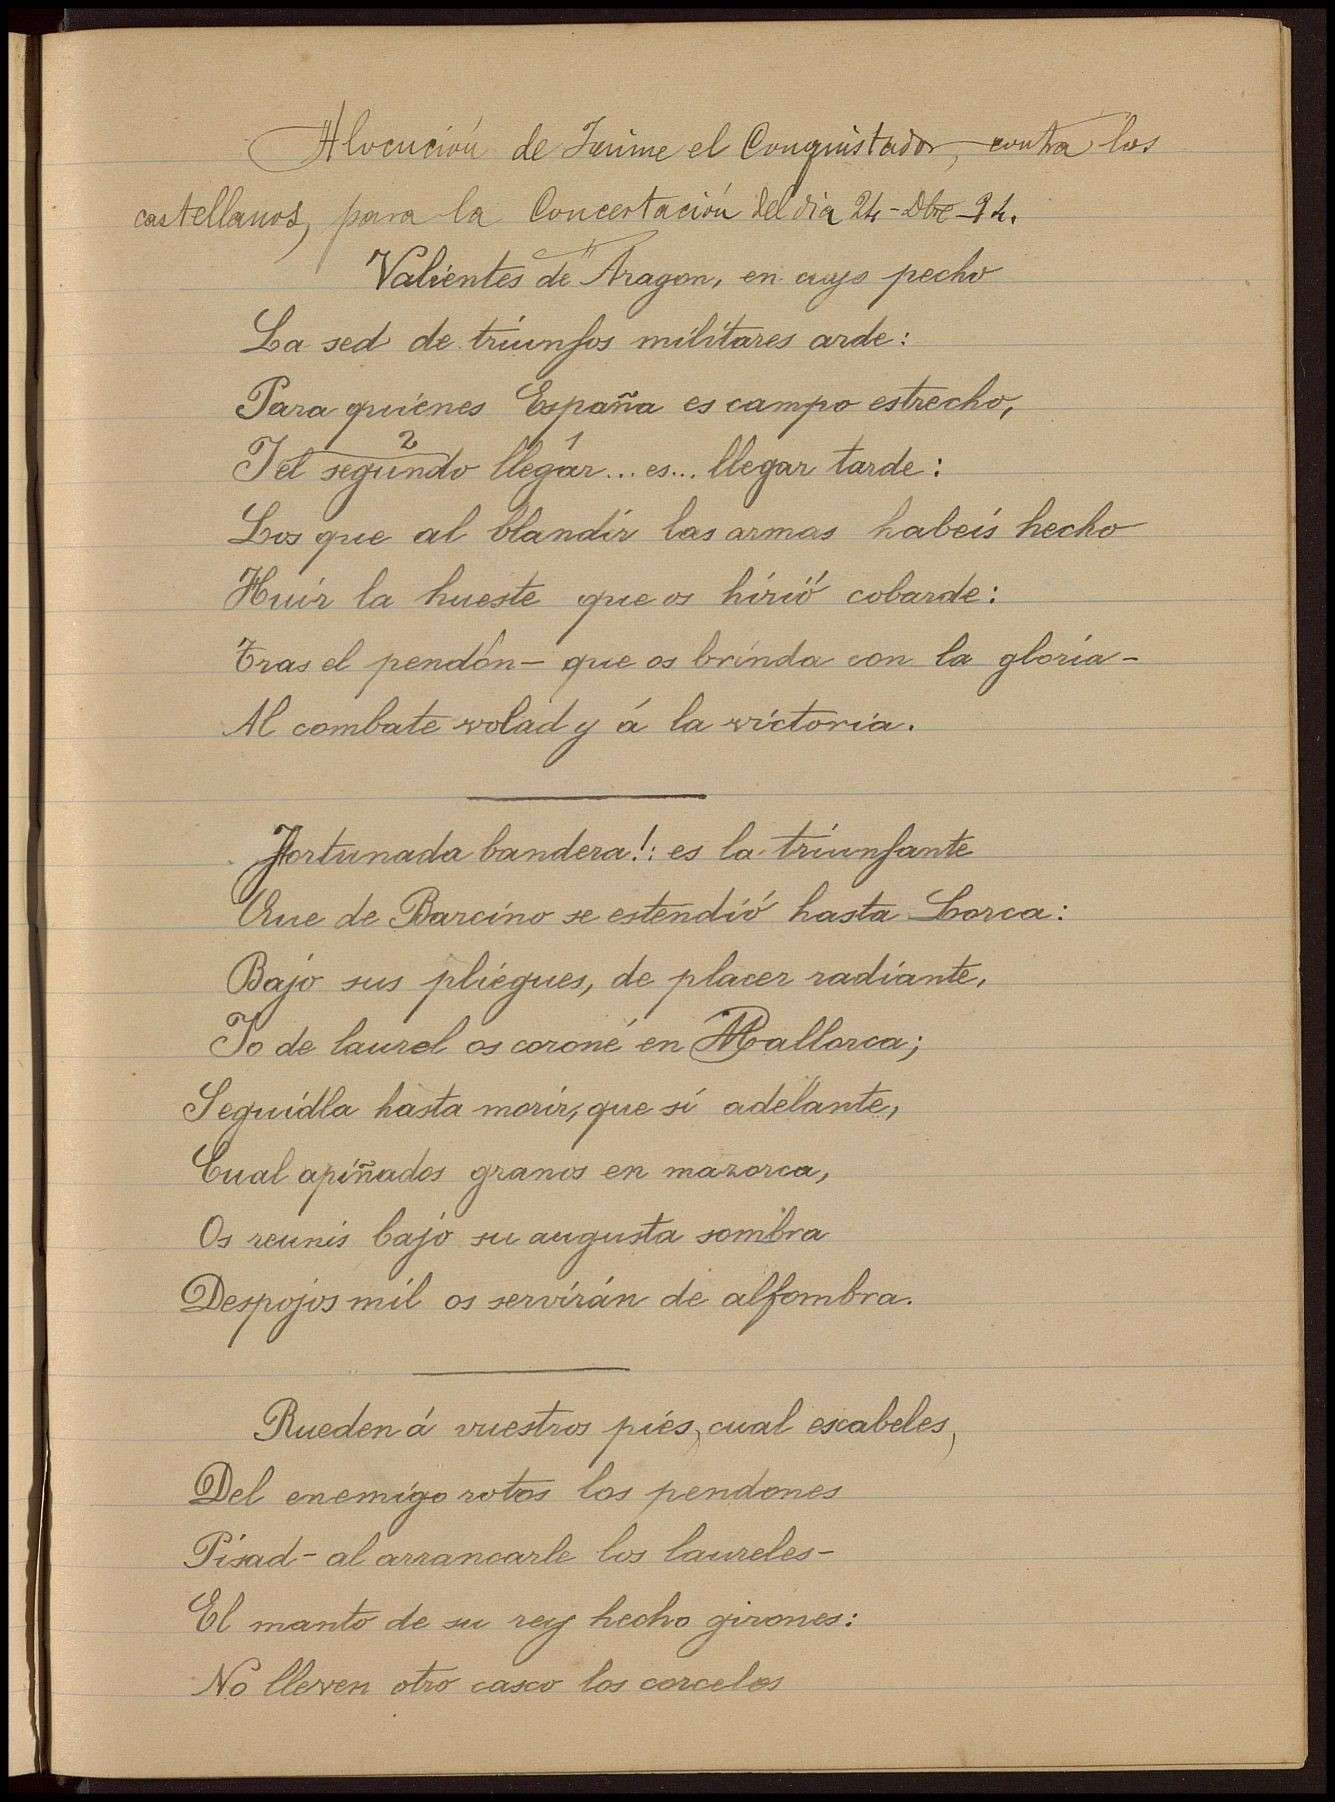 Alocución de Jaime el Conquistador, contra los
castellanos, para la Concertación del dia 24-Dbre-94.
Valientes de Aragon, en cuyo pecho
La sed de triunfos militares arde:
Para quienes España es campo estrecho,
2 1
I el segundo llegar... es... llegar tarde:
Los que al blandir las armas habeis hecho
Huir la hueste que os hirió cobarde:
Tras el pendón- que os brinda con la gloria-
Al combate volad y á la victoria.
Fortunada bandera!: es la triunfante
Que de Barcino se estendió hasta Lorca:
Bajo sus pliegues, de placer radiante,
Io de laurel os coroné en Mallorca;
Seguidla hasta morir, que si adelante,
Cual apiñados granos en mazorca,
Os reunis bajo su augusta sombra
Despojos mil os servirán de alfombra.
Rueden á vuestros piés, cual escabeles,
Del enemigo rotos los pendones
Pisad- al arrancarle los laureles-
El manto de su rey hecho girones:
No lleven otro casco los corceles